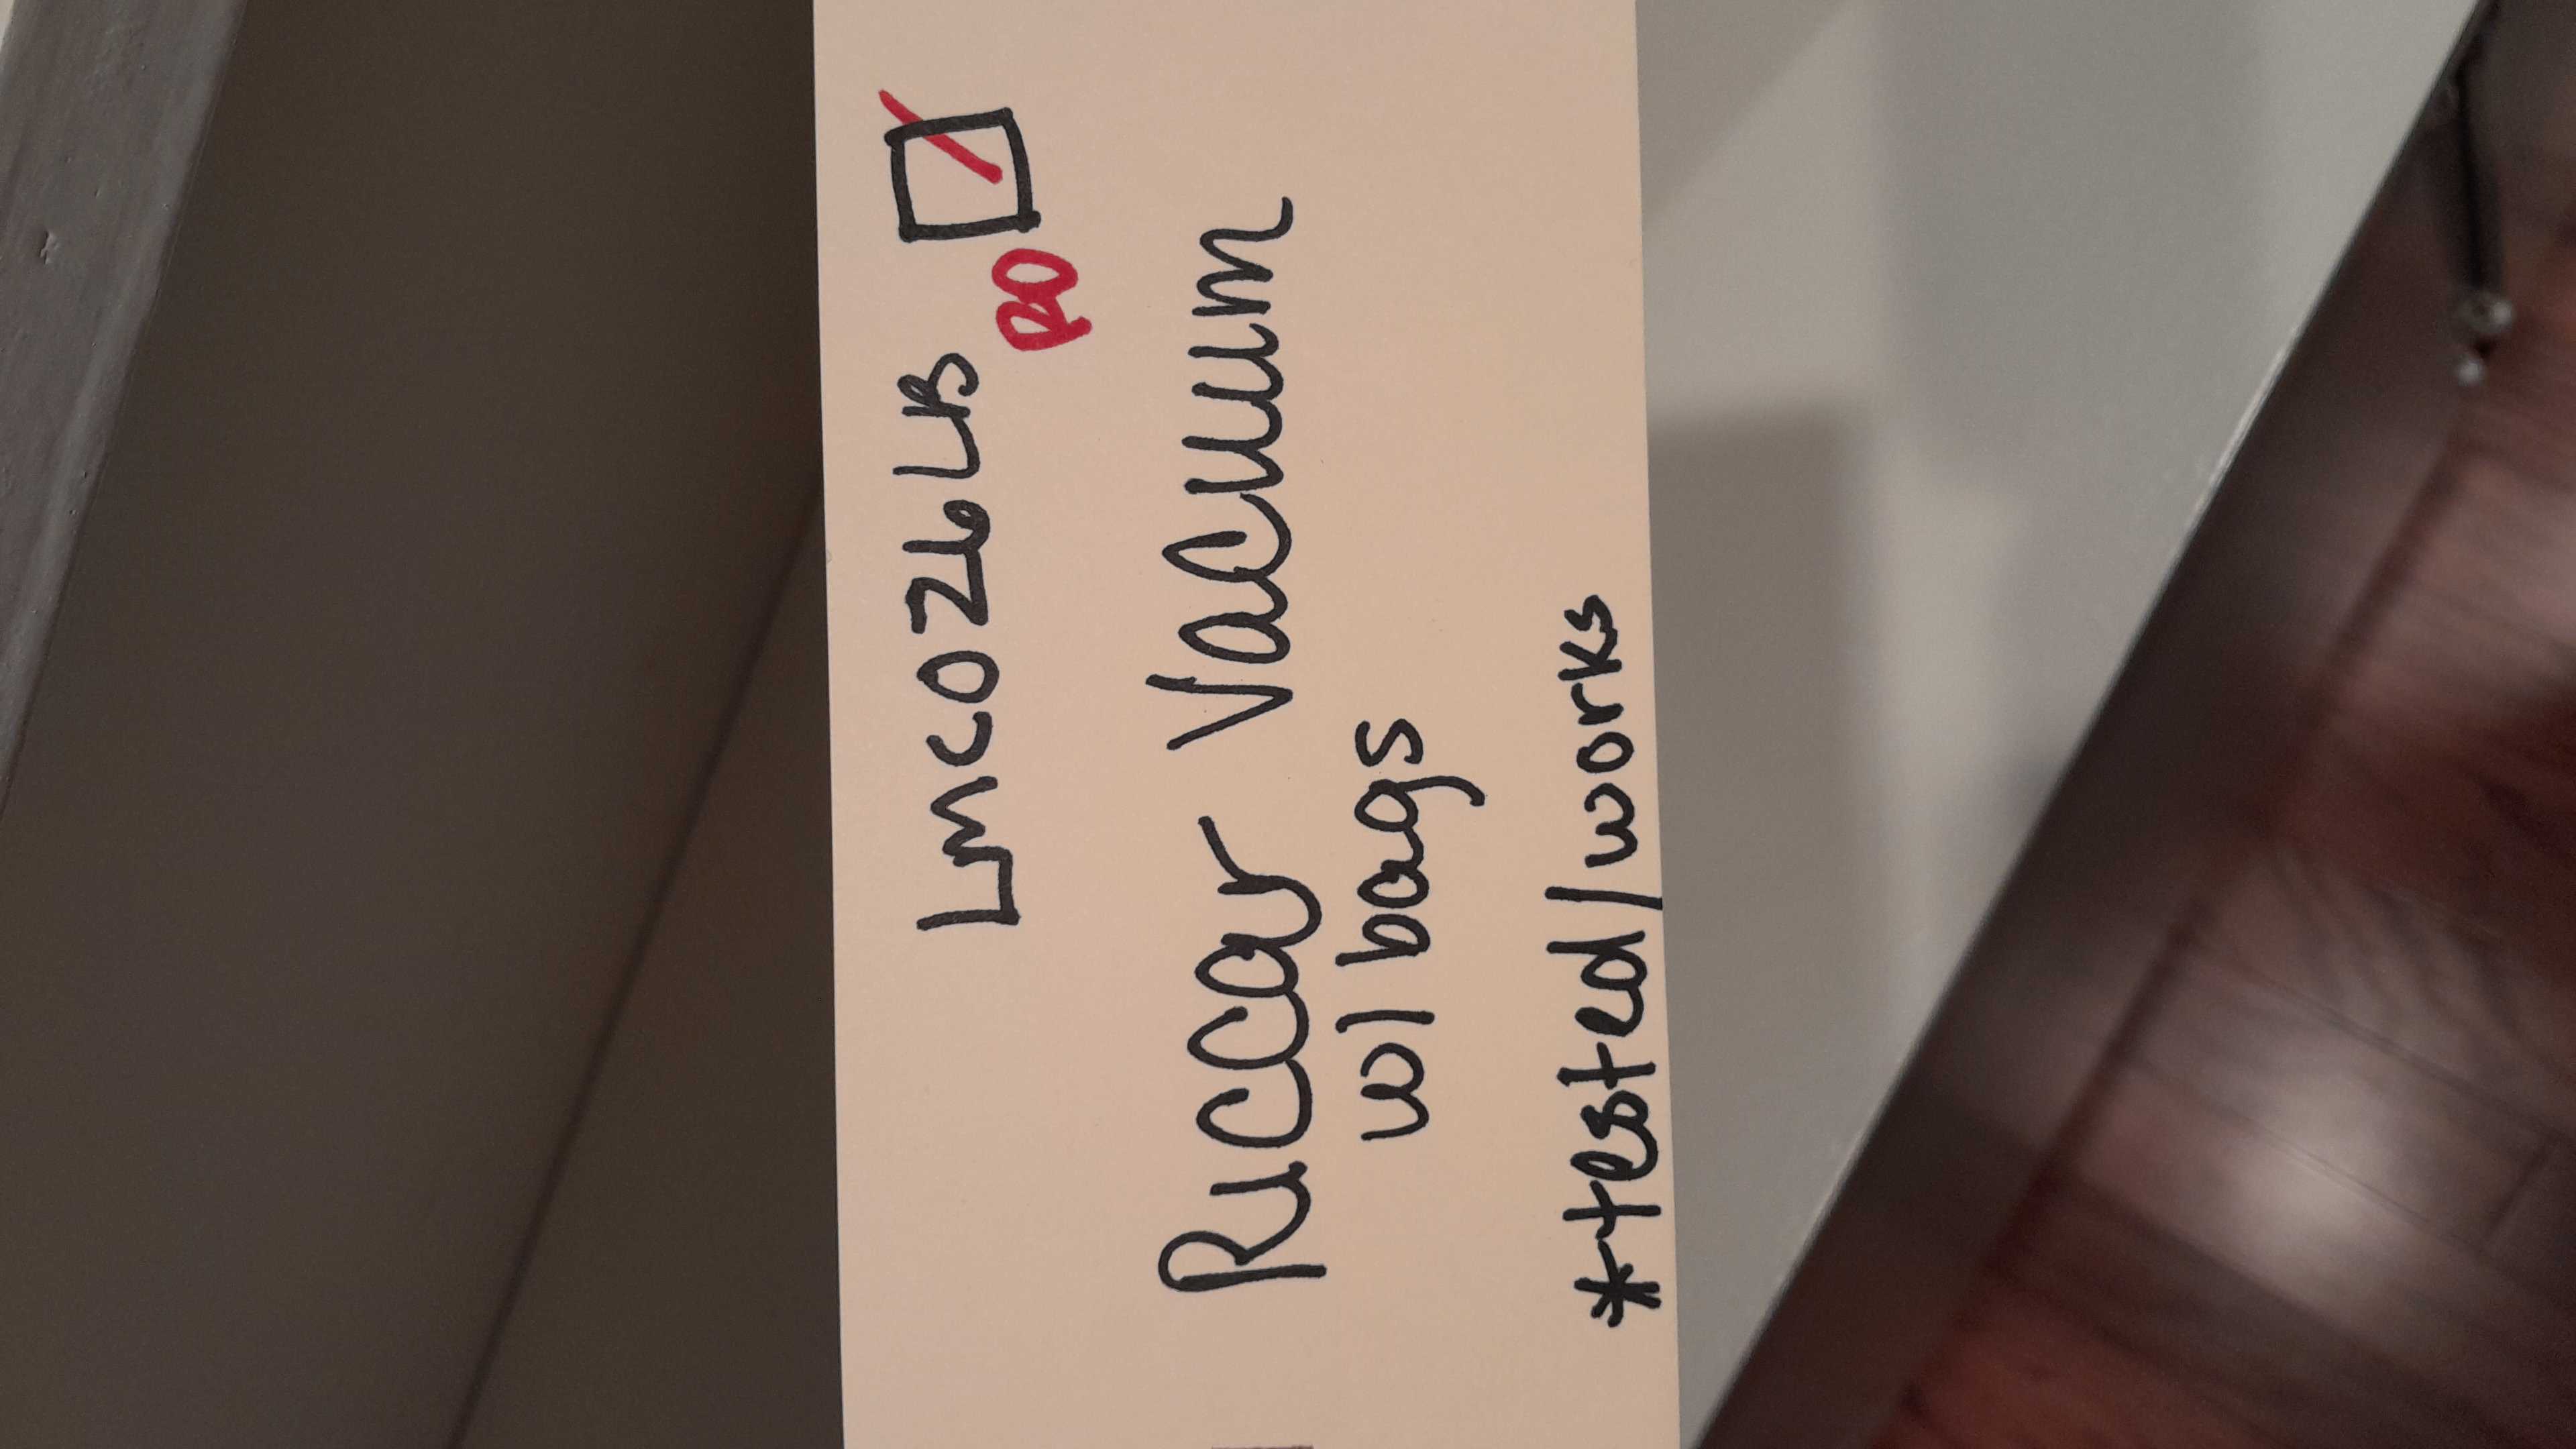 LMCO26LR
RO
Riccar Vacuum
w/ bags
*tested/works